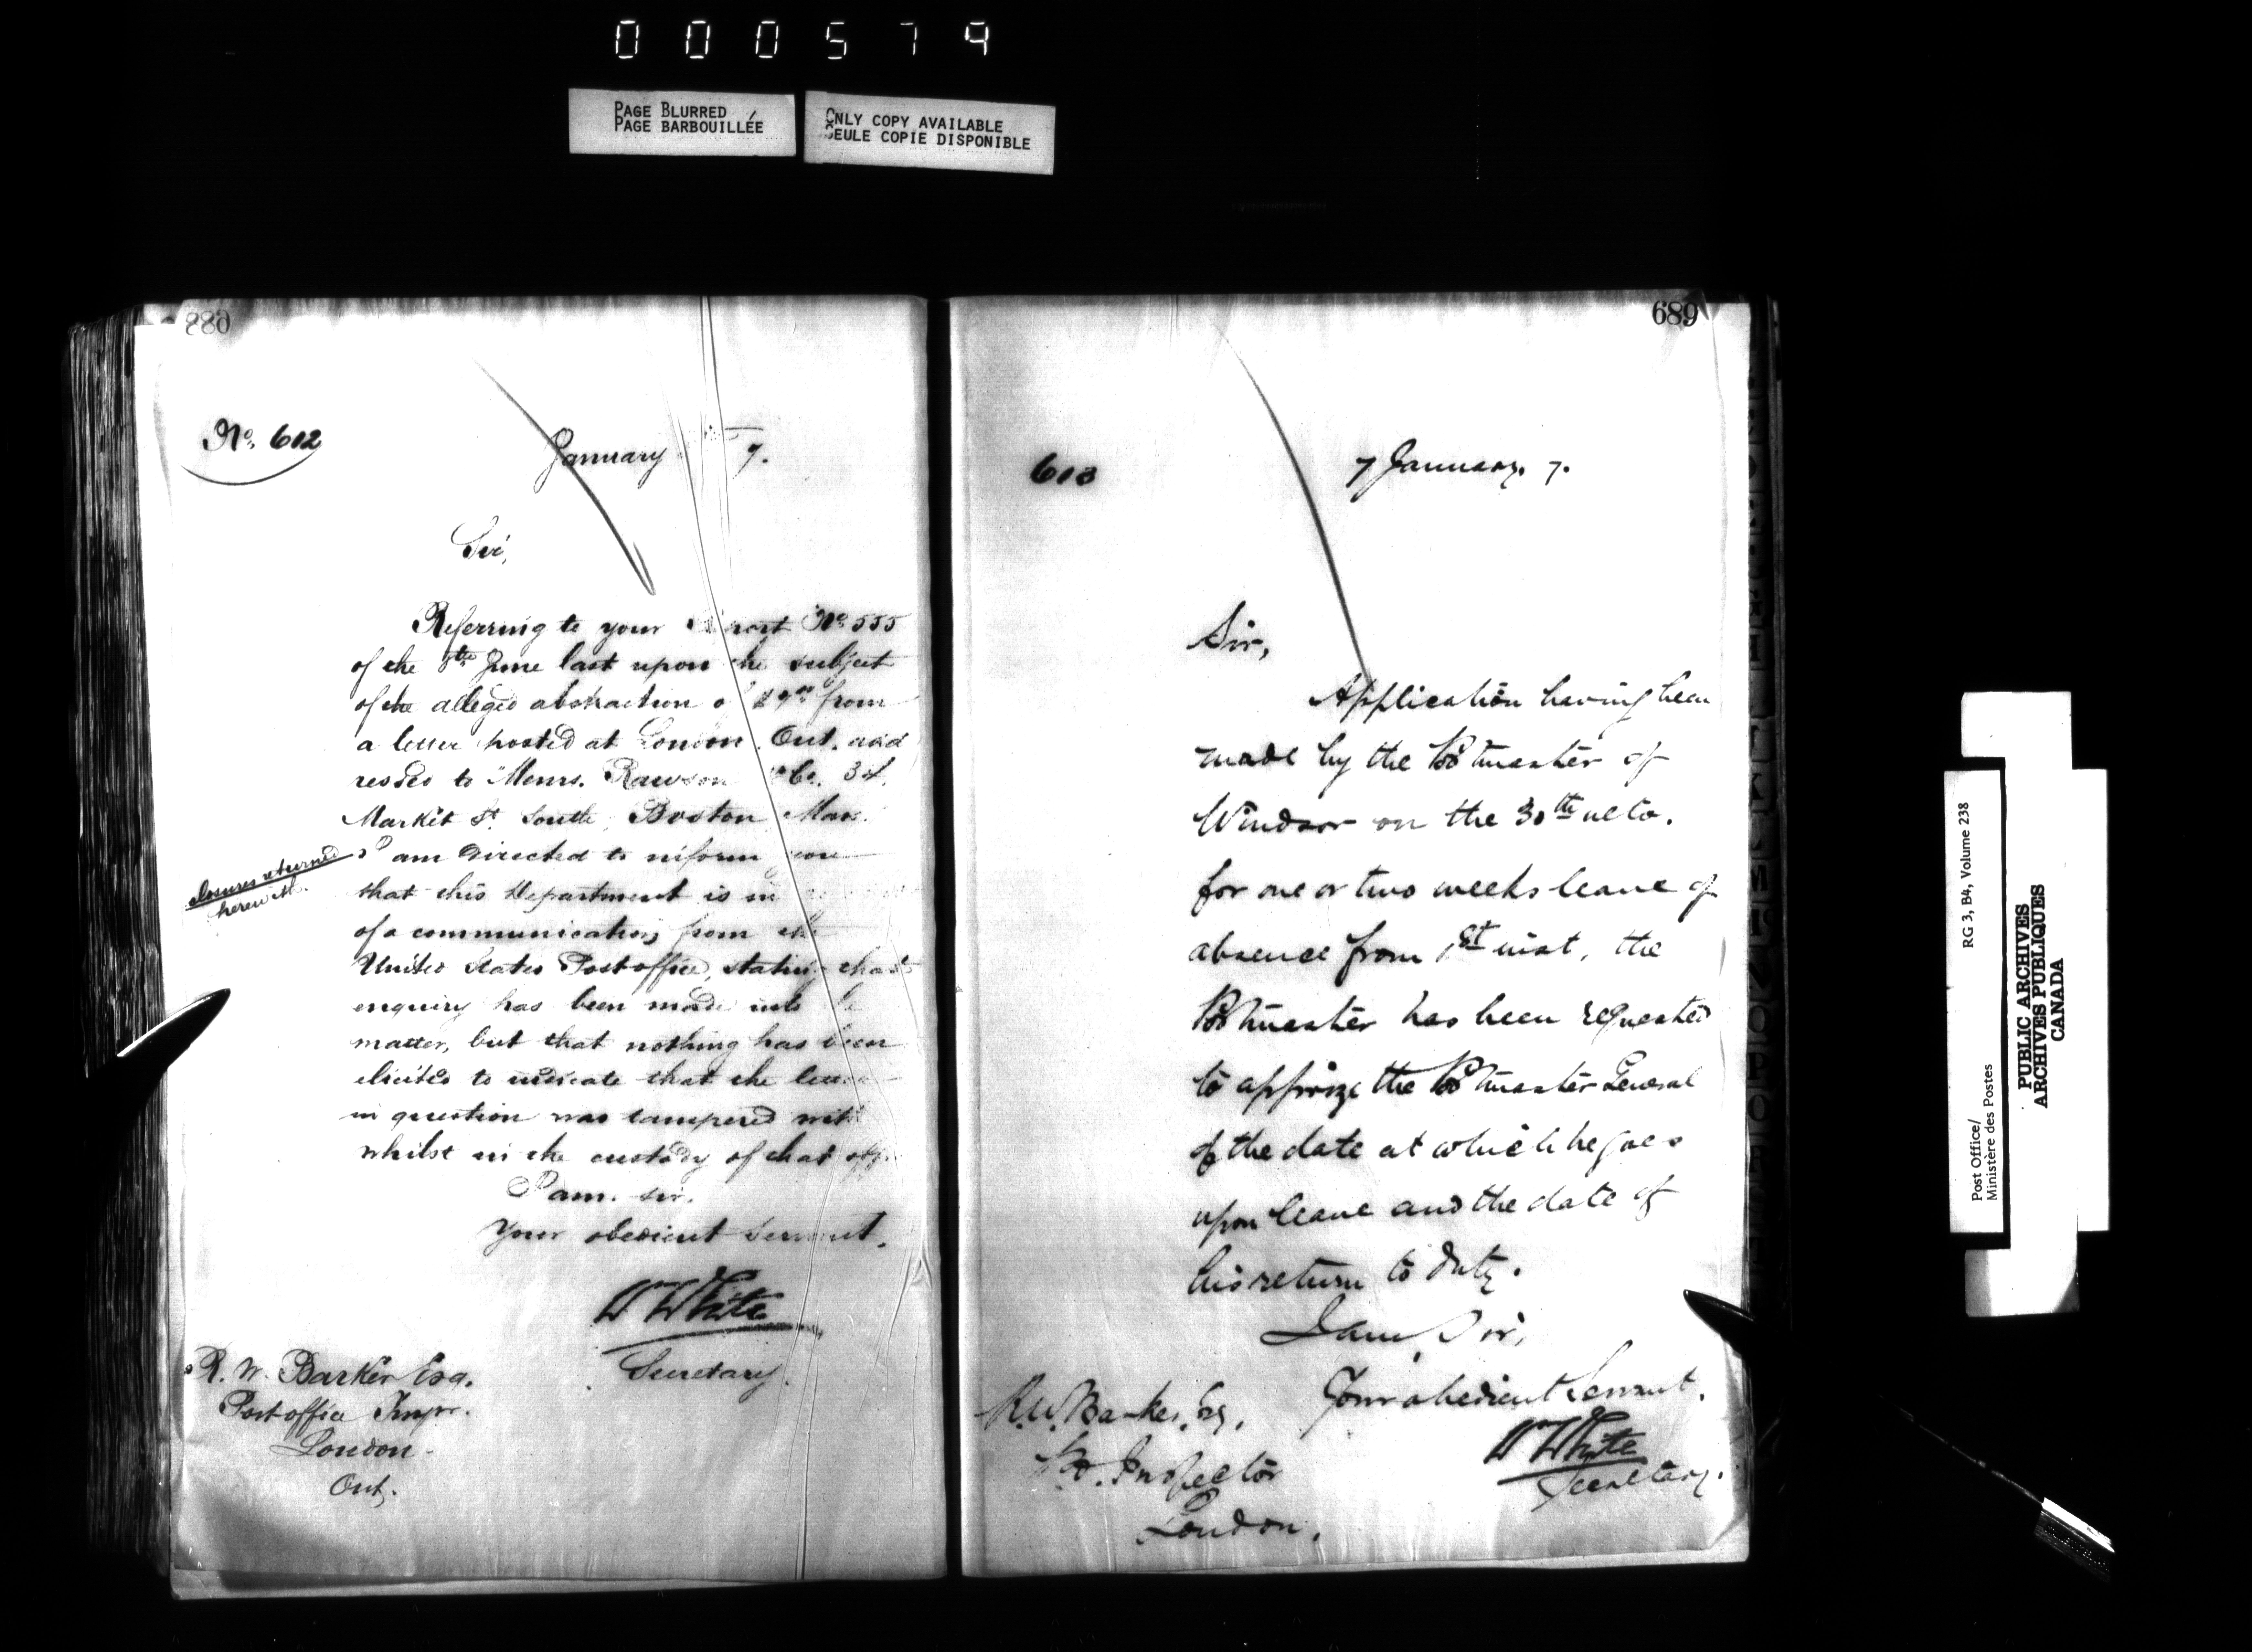 000579
PAGE BLURRED
PAGE BARBOUILLÉE
ONLY COPY AVAILABLE
SEULE COPIE DISPONIBLE
No. 612
January 7.
Sir,
Referring to your Report No 555
of the 8th June last upon the subject
of the alleged abstraction of from
a letter posted at London Ont. add
ressed to Messrs. Rawson & Co. 34.
Market St. South, Boston Mass.
I am directed to inform you
closures returned
herewith.
that this Department is in
of a communication from the
United States Post office, stating that
enquiry has been made into the
matter, but that nothing has been
elicited to indicate that the letter
in question was tampered with
whilst in the custody of that
I am. sir.
Your obedient Servant.
W White
Secretary.
R. W. Barker Esq.
Post office Inspr.
London
Ont.
689
613
7 January. 7.
Sir,
Application having been
made by the Postmaster of
Windsor on the 30th ulto.
for one or two weeks leave of
absence from 1st inst, the
Postmaster has been requested
to apprize the Postmaster General
of the date at which he goes
upon leave and the date of
his return to duty.
I am, Sir,
Your obedient Servant.
W White
Secretary.
R.W. Barker, Esq,
P.O. Inspector
London,
Post Office/
Ministère des Postes
RG 3, B4, Volume 238
PUBLIC ARCHIVES
ARCHIVES PUBLIQUES
CANADA